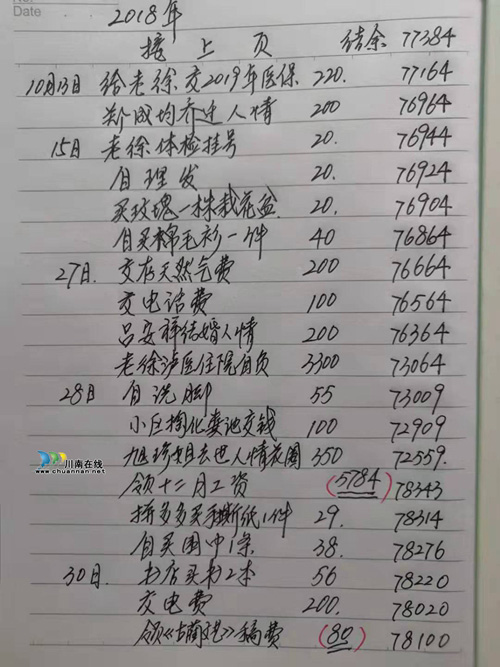 No.
Date
2018年
接上页 结余: 77384
10月13日 给老徐交2019年医保 220. 77164
郑成均乔迁人情 200 76964
15日 老徐体检挂号 20. 76944
自理发 20. 76924
买玫瑰一株栽花盆 20. 76904
自买棉毛衫一件 40 76864
27日. 交存天然气费 200 76664
交电话费 100 76564
吕安祥结婚人情 200 76364
老徐泸医住院自负 3300 73064
28日 自洗脚 55 73009
小区掏化粪池交钱 100 72909
旭珍姐去世人情花圈 350 72559.
领十二月工资 (5784) 78343
拼多多买手撕纸1件 29. 78314
自买围巾1条 38. 78276
30日. 书店买书2本 56 78220
交电费 200. 78020
领《古蔺文艺》稿费 (80) 78100
川南在线
www.chuannan.net